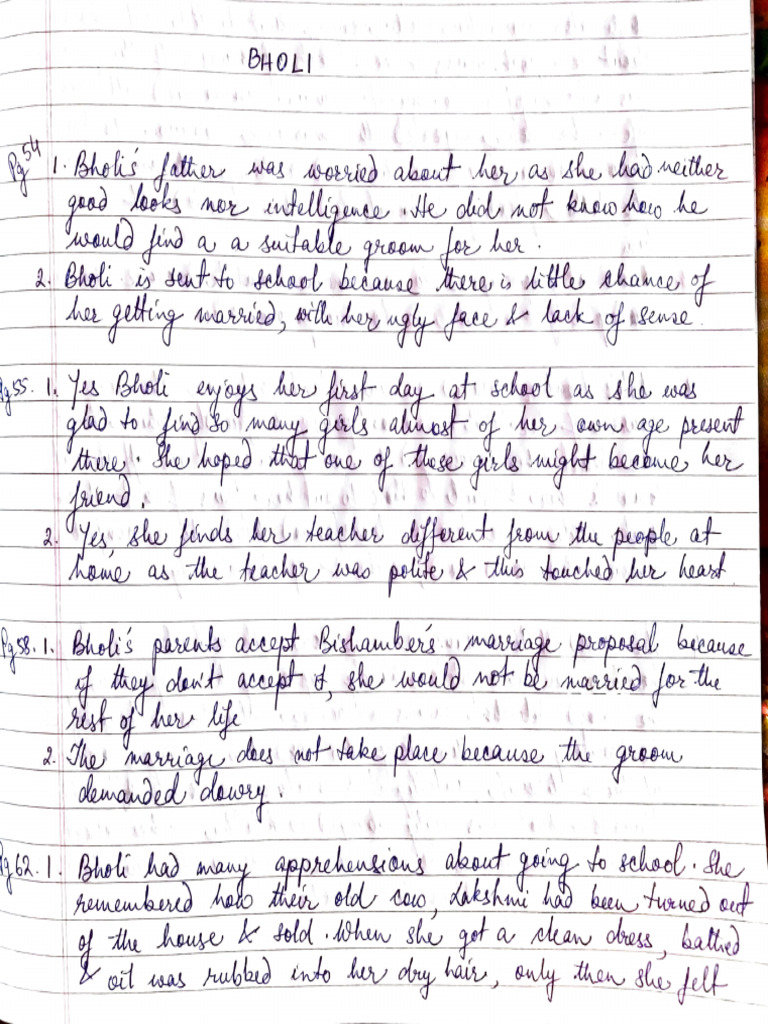 BHOLI
Pg 54 1. Bholi's father was worried about her as she had neither
good looks nor intelligence. He did not know how he
would find a a suitable groom for her.
2. Bholi is sent to school because there is little chance of
her getting married, with her ugly face & lack of sense.
Pg 55. 1. Yes Bholi enjoys her first day at school as she was
glad to find so many girls almost of her own age present
there. She hoped that one of these girls might become her
friend.
2. Yes, she finds her teacher different from the people at
home as the teacher was polite & this touched her heart.
Pg 58. 1. Bholi's parents accept Bishamber's marriage proposal because
if they don't accept it, she would not be married for the
rest of her life
2. The marriage does not take place because the groom
demanded dowry.
Pg 62. 1. Bholi had many apprehensions about going to school. She
remembered how their old cow, Lakshmi had been turned out
of the house & sold. When she got a clean dress, bathed
& oil was rubbed into her dry hair, only then she felt